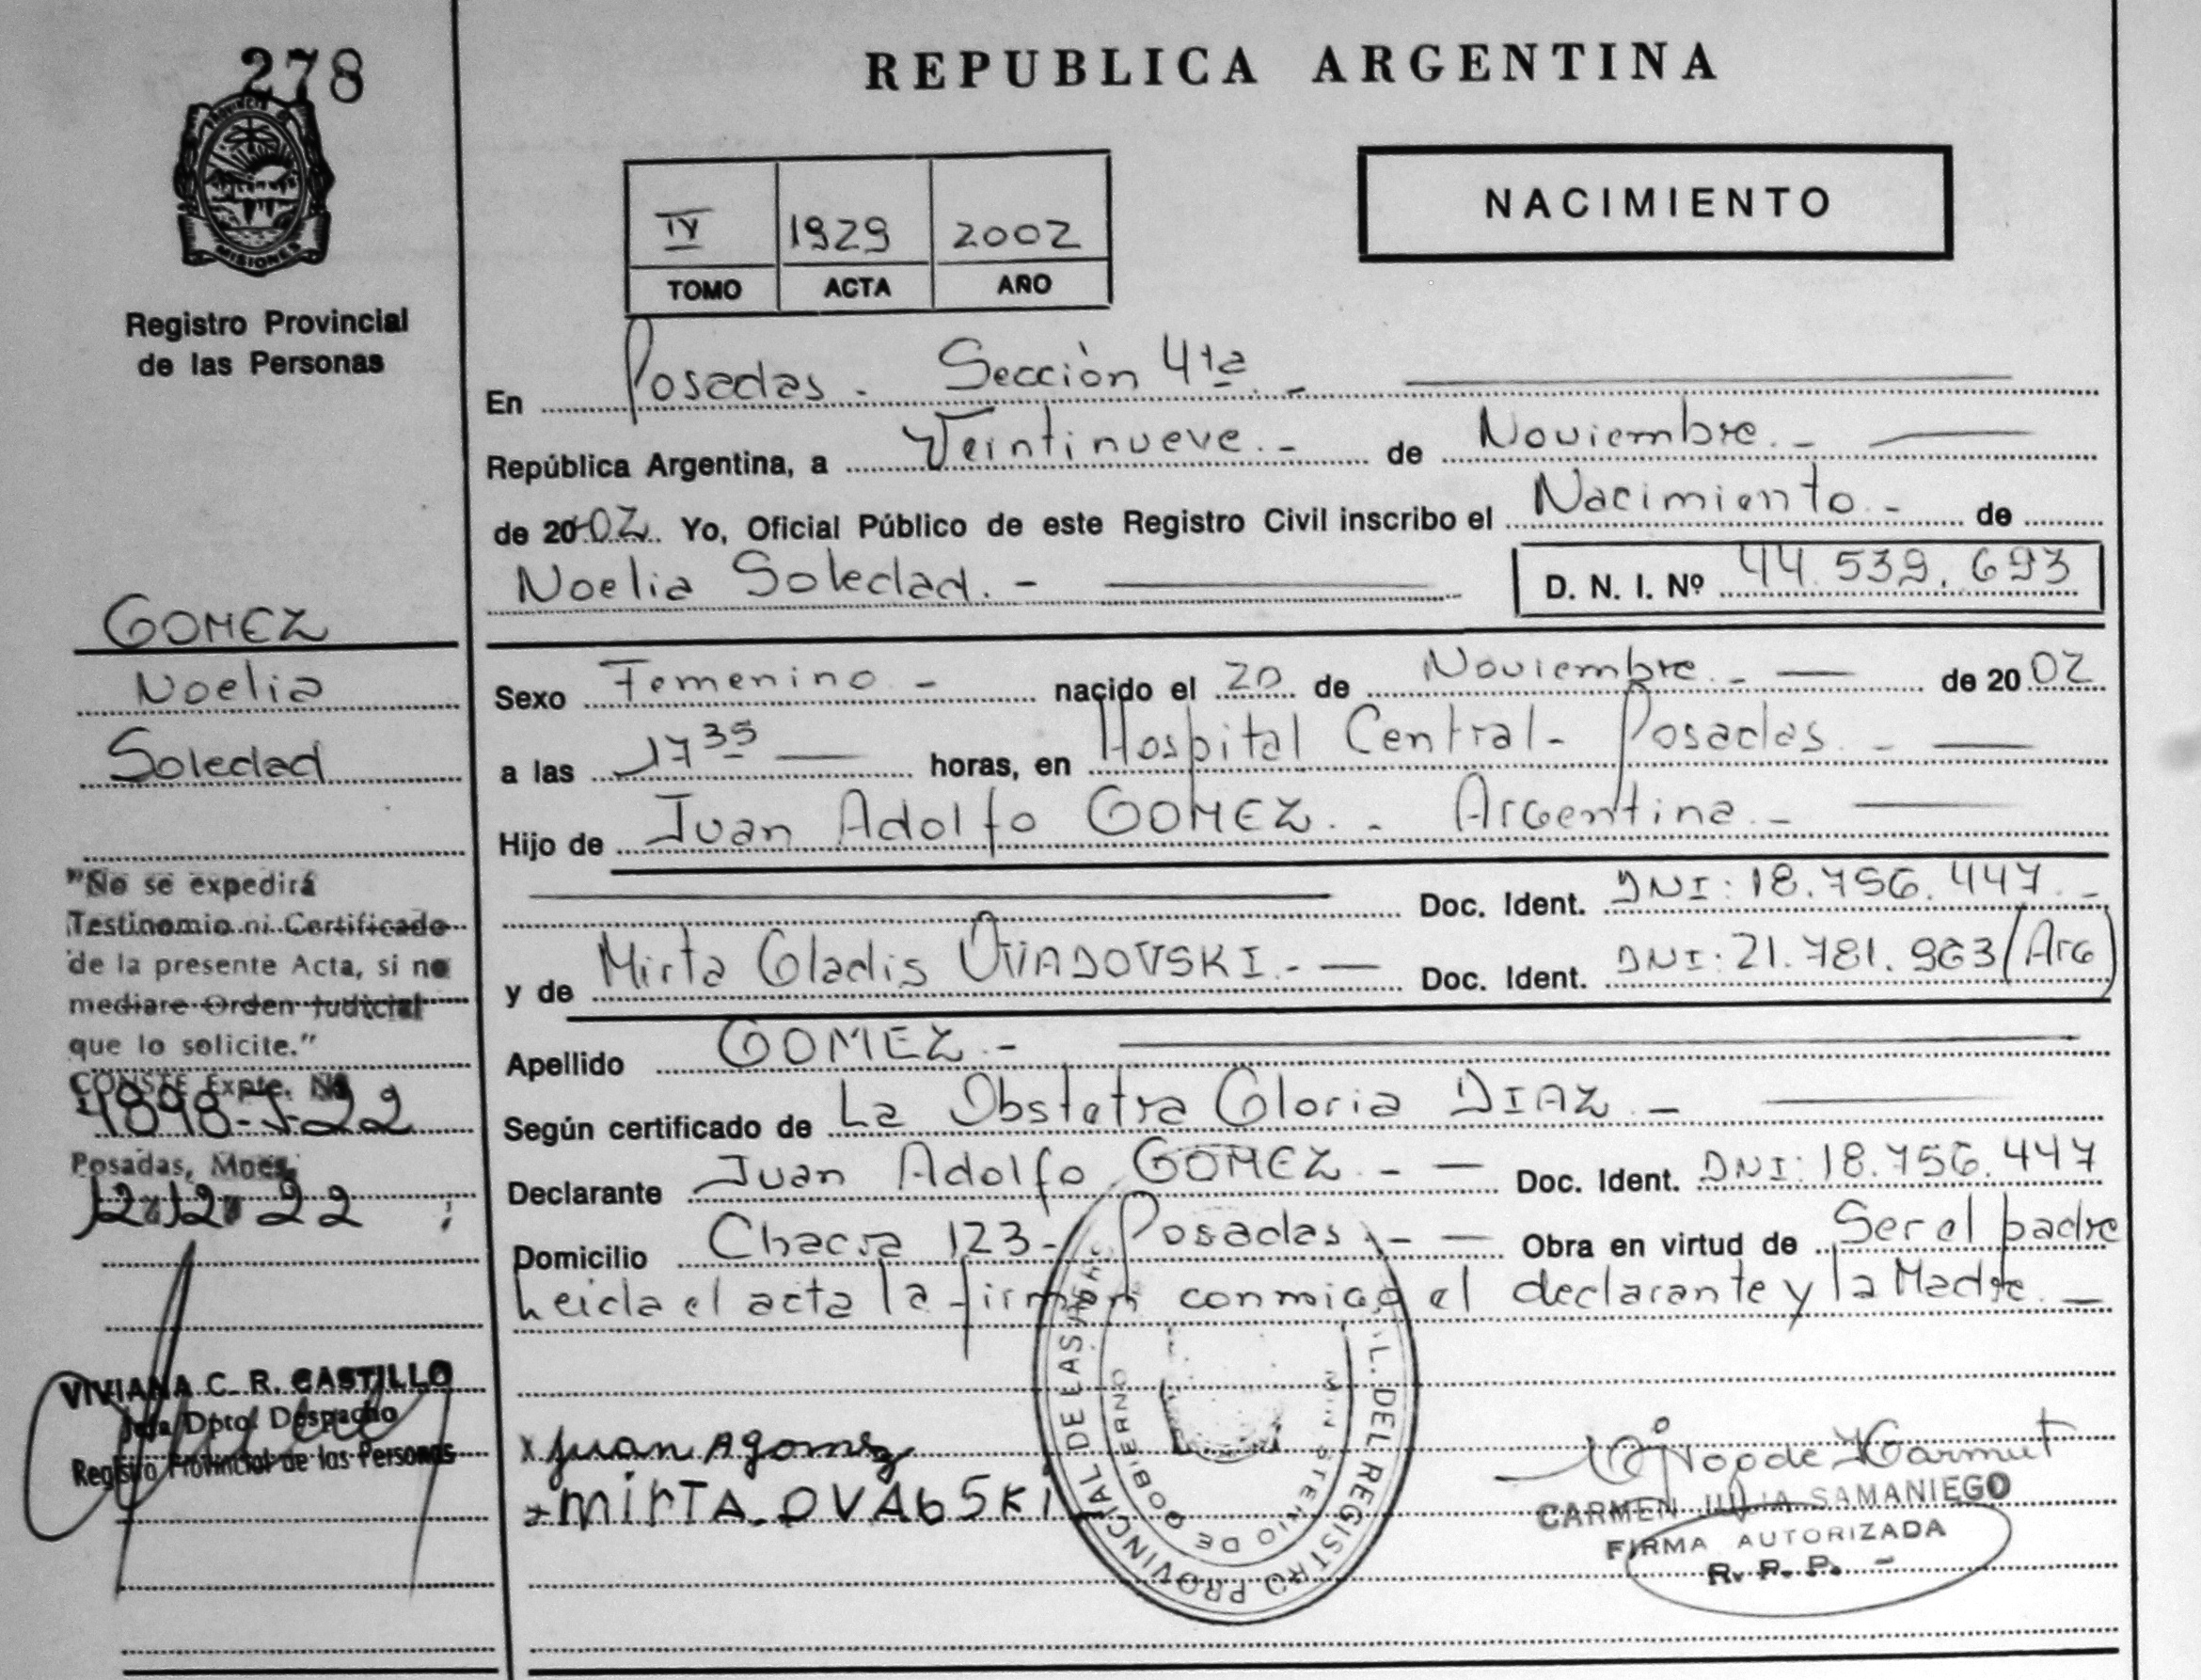 278
REPUBLICA ARGENTINA
PROVINCIA DE
MISIONES
Registro Provincial
de las Personas
IV 1929 2002
TOMO ACTA AÑO
NACIMIENTO
En Posadas. Sección 4ta.-
República Argentina, a Veintinueve.- de Noviembre.-
de 20 02. Yo, Oficial Público de este Registro Civil inscribo el Nacimiento.- de
Noelia Soledad.- D. N. I. Nº 44.539.693
GOMEZ
Noelia
Soledad
Sexo Femenino - nacido el 20 de Noviembre.- de 20 02
a las 17 35 horas, en Hospital Central- Posadas.-
Hijo de Juan Adolfo GOMEZ.- Argentina.-
Doc. Ident. DNI: 18.756.447.-
y de Mirta Gladis Doc. Ident. DNI: 21.781.963 (Arg)
Apellido GOMEZ.-
Según certificado de La Obstetra Gloria DIAZ.-
Declarante Juan Adolfo GOMEZ.- Doc. Ident. DNI: 18.756.447
Domicilio Chacra 123- Posadas.- Obra en virtud de Ser el padre
Leida el acta la firman conmigo el declarante y la Madre.
"No se expedirá
Testinomio ni Certificado
de la presente Acta, si no
mediare Orden Judicial
que lo solicite."
CONSTE Expte. Nº
Posadas, Mnes,
12-12-22
VIVIANA C. R. CASTILLO
Jefa Dpto. Despacho
Registro Provincial de las Personas
x Juan A gomez
MirTA
REGISTRO PROVINCIAL DE LAS
MINISTERIO DE GOBIERNO
CARMEN JULIA SAMANIEGO
FIRMA AUTORIZADA
R. P. P. -